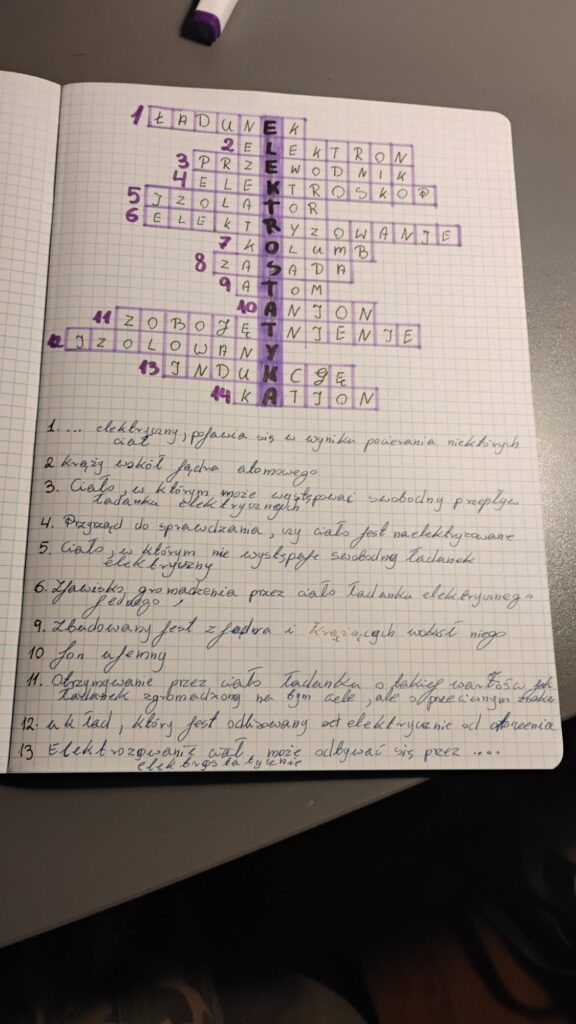 1 ŁADUNEK
2 ELEKTRON
3 PRZEWODNIK
4 ELEKTROSKOP
5 IZOLATOR
6 ELEKTRYZOWANIE
7 KOLUMB
8 ZASADA
9 ATOM
10 ANJON
11 ZOBOJĘTNIENIE
12 IZOLOWANY
13 INDUKCGĘ
14 KATION
1. .... elektryczny, pojawia się w wyniku pocierania niektórych
ciał
2 Krąży wokół jądra atomowego
3. Ciało, w którym może występować swobodny przepływ
ładunku elektrycznych
4. Przyrząd do sprawdzania, czy ciało jest naelektryzowane
5. Ciało, w którym nie występuje swobodny ładunek
elektryczny
6. Zjawisko, gromadzenia przez ciało ładunku elektrycznego
jednego
9. Zbudowany jest z jądra i krążących wokół niego
10 Jon ujemny
11. Otrzymywanie przez ciało ładunku o takiej wartości jak
ładunek zgromadzony na tym ciele, ale o przeciwnym znaku
12. układ, który jest odizowany od elektrycznie od otoczenia
13 Elektrozowanie ciał, może odbywać się przez ....
elektrostatycznie